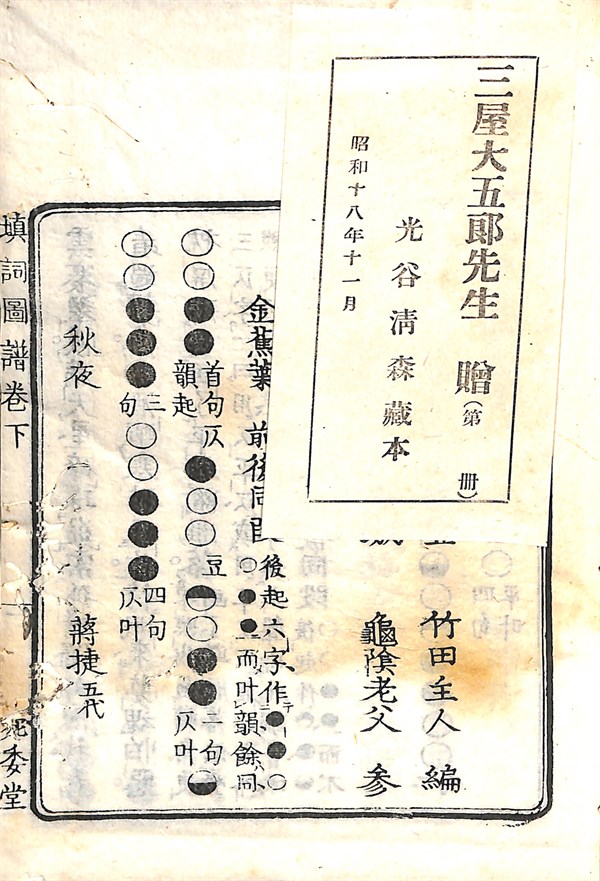 三屋大五郎先生 贈(第 冊)
光谷清森藏本
昭和十八年十一月
竹田主人 編
龜陰老父 參
金蕉葉 前後同
後起六字作
○●●
而叶韻餘同
○○●●
首句仄
韻起
●○○
豆
○●●
二句
仄叶
○○●●●
三
句
○○●●●
四句
仄叶
秋夜
蔣捷 五代
填詞圖譜卷下
委堂